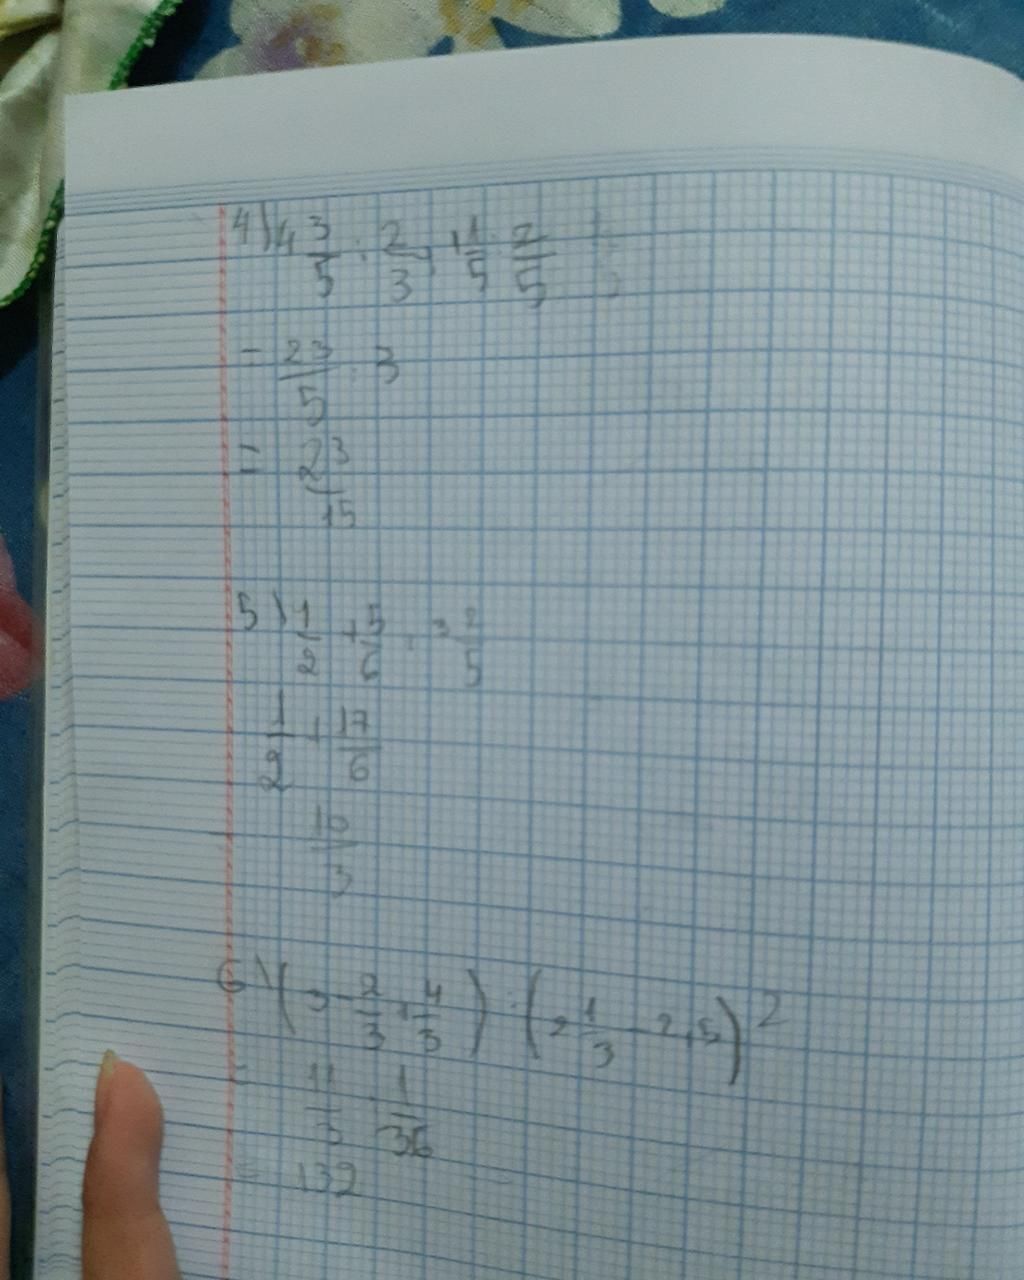 4) 4 3/5 : 2/3 , 1 1/5 : 2/5
= 23/5 : 3
= 23/15
5) 1/2 + 5/6 : 3 2/5
1/2 + 17/6
10/3
6) (3 - 2/3 + 4/3) : (2 1/3 - 2,5)2
= 11/3 : 1/36
= 132